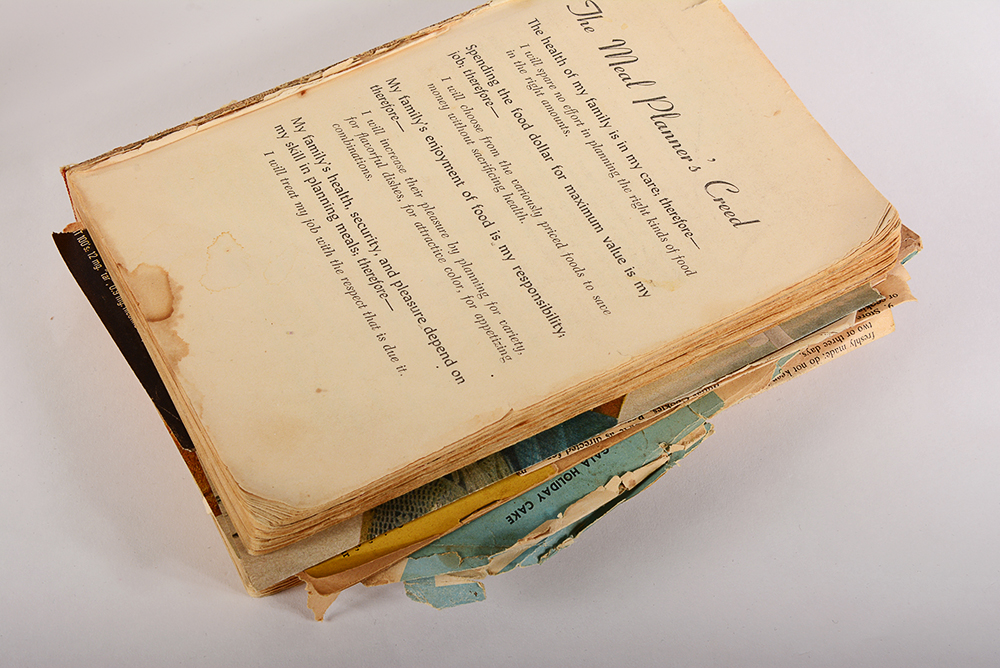 The Meal Planner's Creed
The health of my family is in my care; therefore—
I will spare no effort in planning the right kinds of food
in the right amounts.
Spending the food dollar for maximum value is my
job; therefore—
I will choose from the variously priced foods to save
money without sacrificing health.
My family's enjoyment of food is my responsibility;
therefore—
I will increase their pleasure by planning for variety,
for flavorful dishes, for attractive color, for appetizing
combinations.
My family's health, security, and pleasure depend on
my skill in planning meals; therefore—
I will treat my job with the respect that is due it.
100's: 12 mg. "tar", 0.9 mg.
y. Store
two or three days,
freshly made; do not
as directed
GALA HOLIDAY CAKE